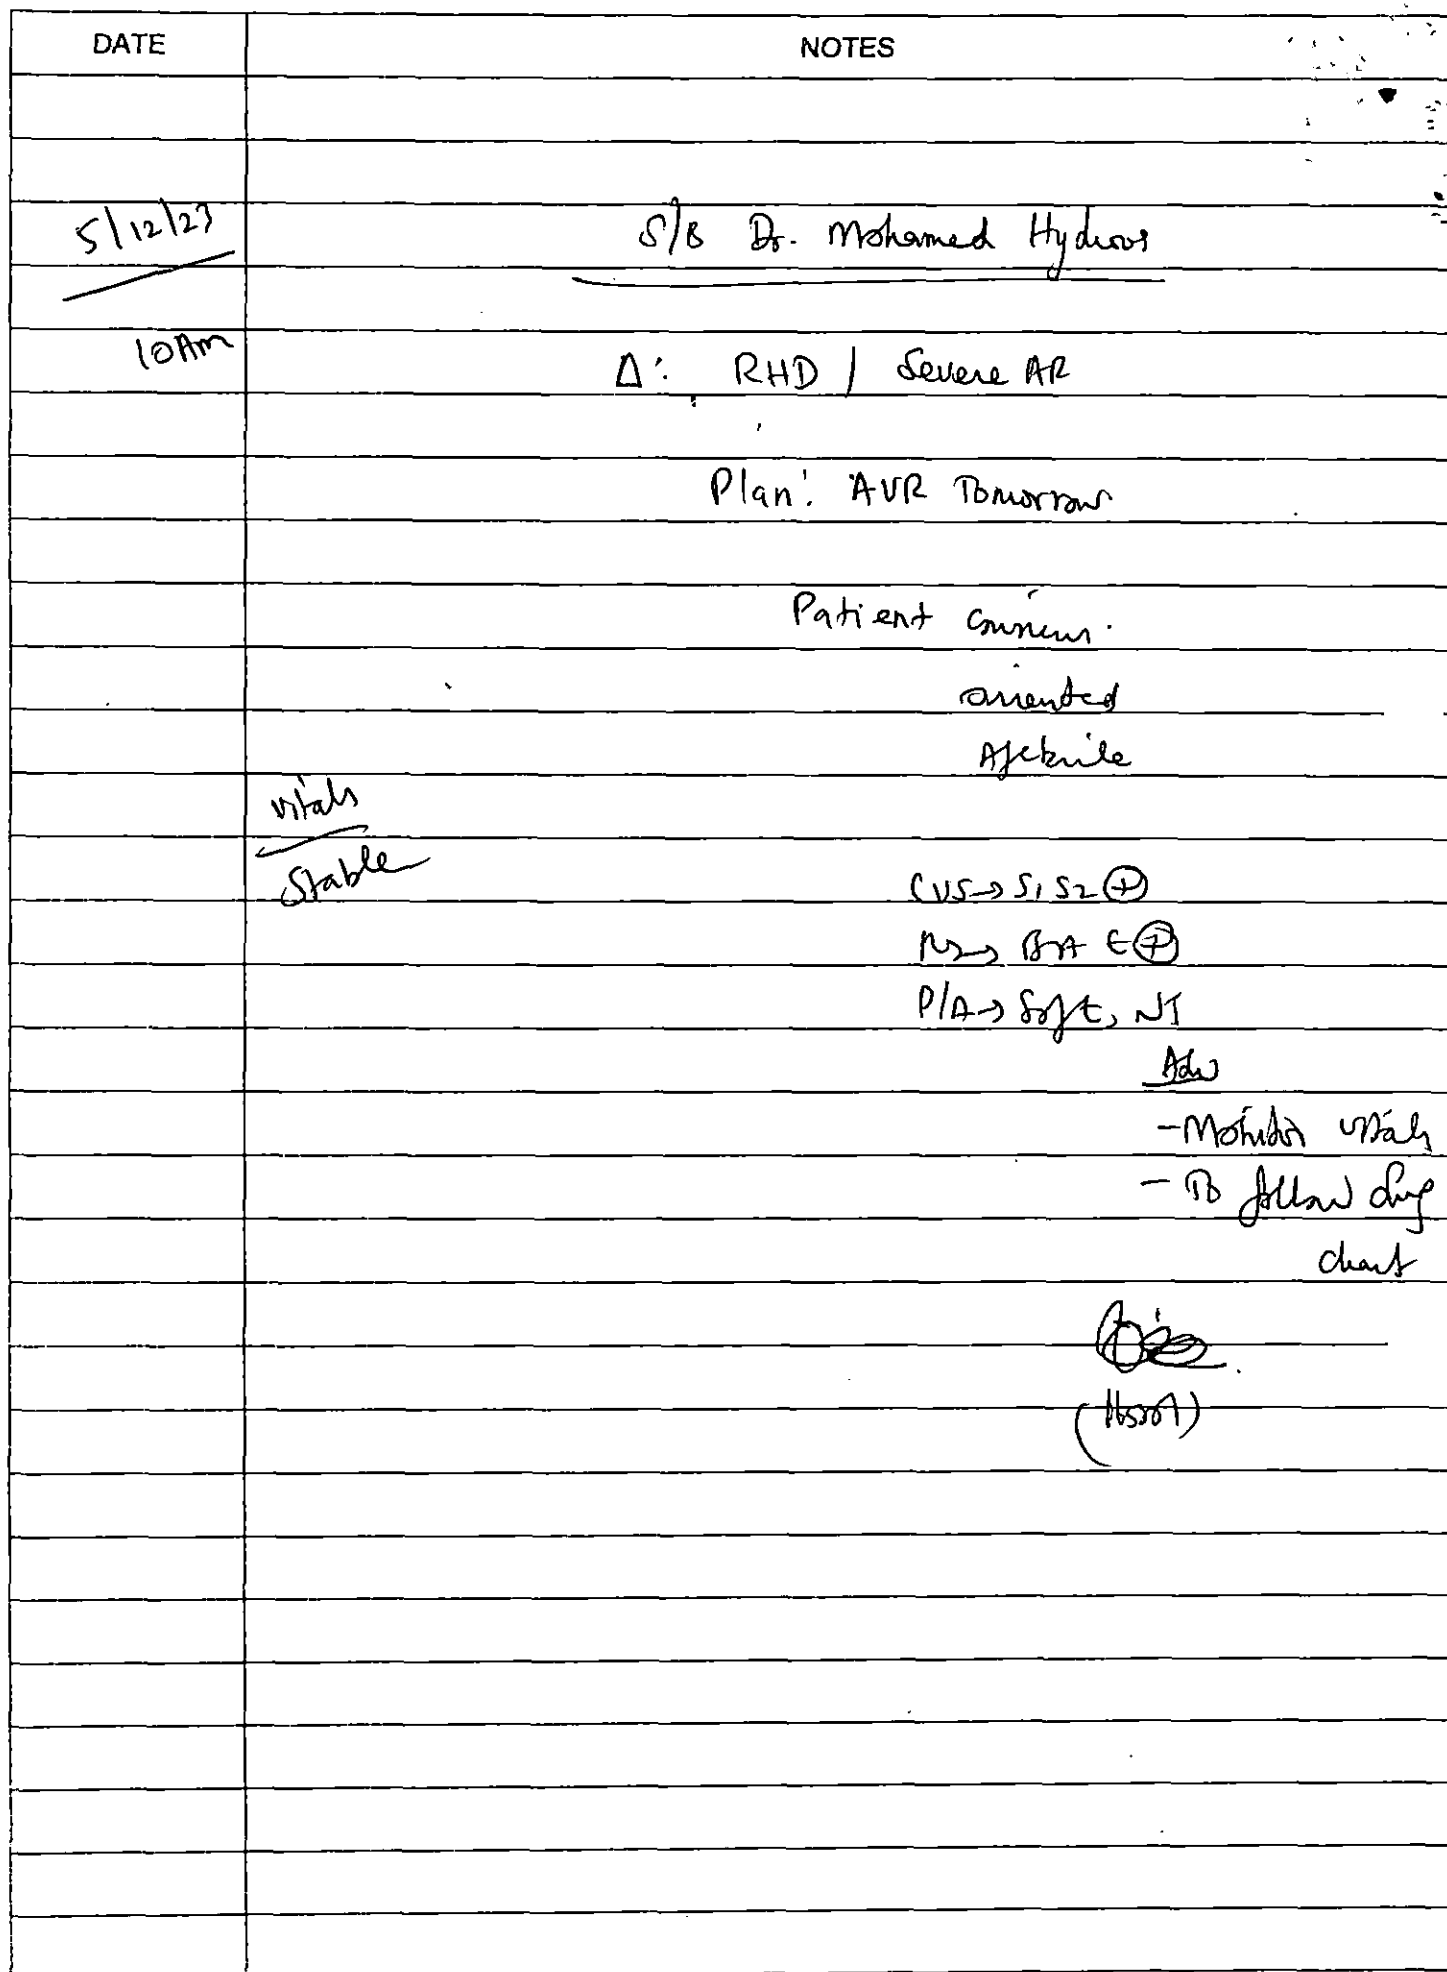 DATE NOTES
5/12/23 S/B Dr. Mohamed Hydroos
10Am Δ: RHD / Severe AR
Plan: AVR Tomorrow
Patient conscious.
oriented
Afebrile
vitals
Stable
CVS→ S1 S2 ⊕
RS→ BAE ⊕
P/A→ Soft, NT
Adv
- Monitor vitals
- To follow drug
chart